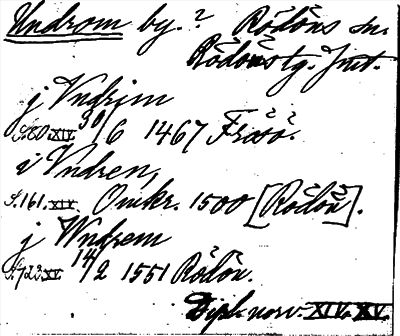 Undrom by.? Rödöns sn.
Rödönstg. Jmt.
j Vndrim
S. 80. XIV. 30/6 1467 Frösö.
i Vndren,
S. 161. XIV. Omkr. 1500 [Rödön].
j Wndrem
S. 722 XV 14/2 1551 Rödön.
Dipl. norv. XIV. XV.